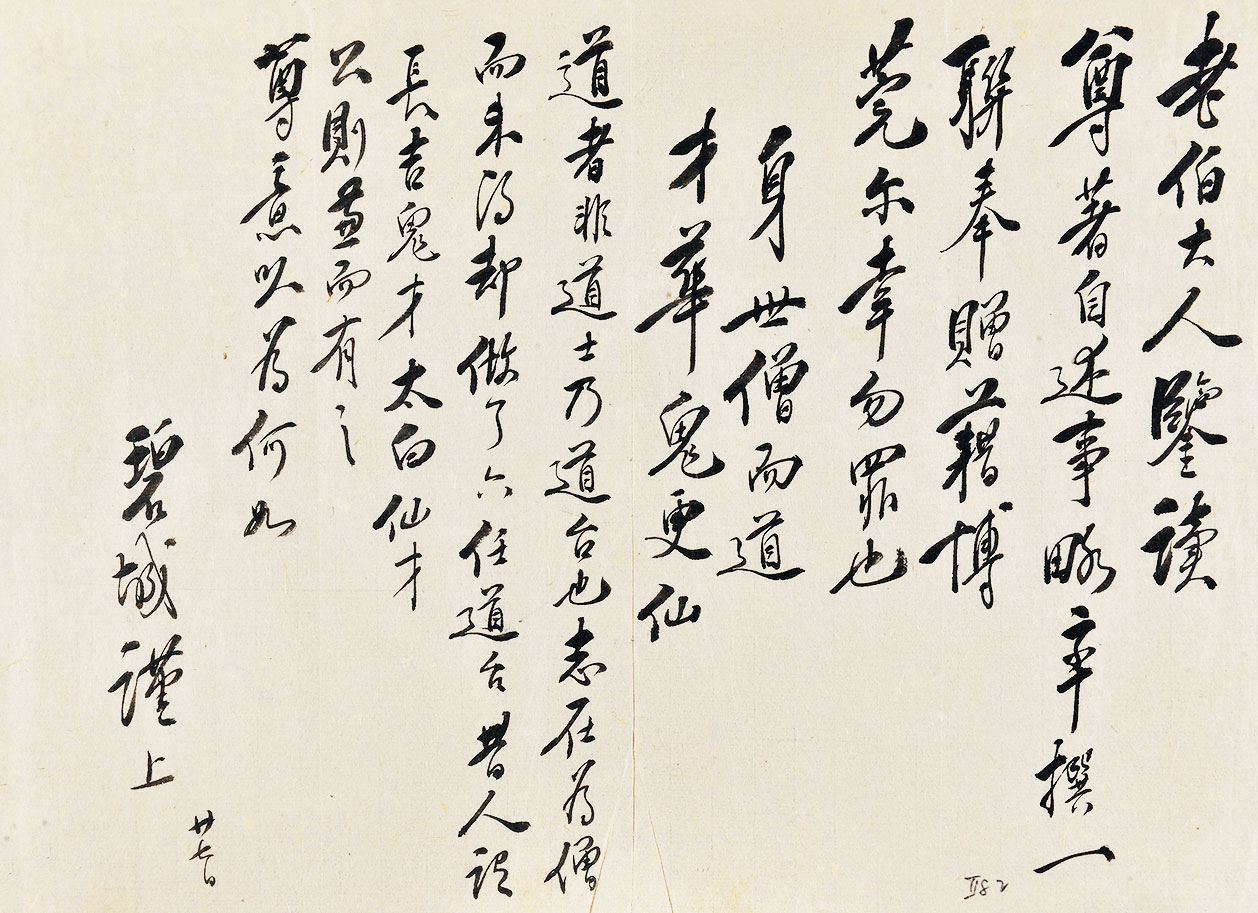 老伯大人鑒讀
尊著自述事略率撰一
聯奉贈以藉博
莞尔幸勿罪也
身世僧而道
才華鬼更仙
道者非道士乃道台也志在為僧
而未得却做了六任道台昔人謂
長吉鬼才太白仙才
公則兼而有之
尊意以為何如
碧城謹上
廿七日